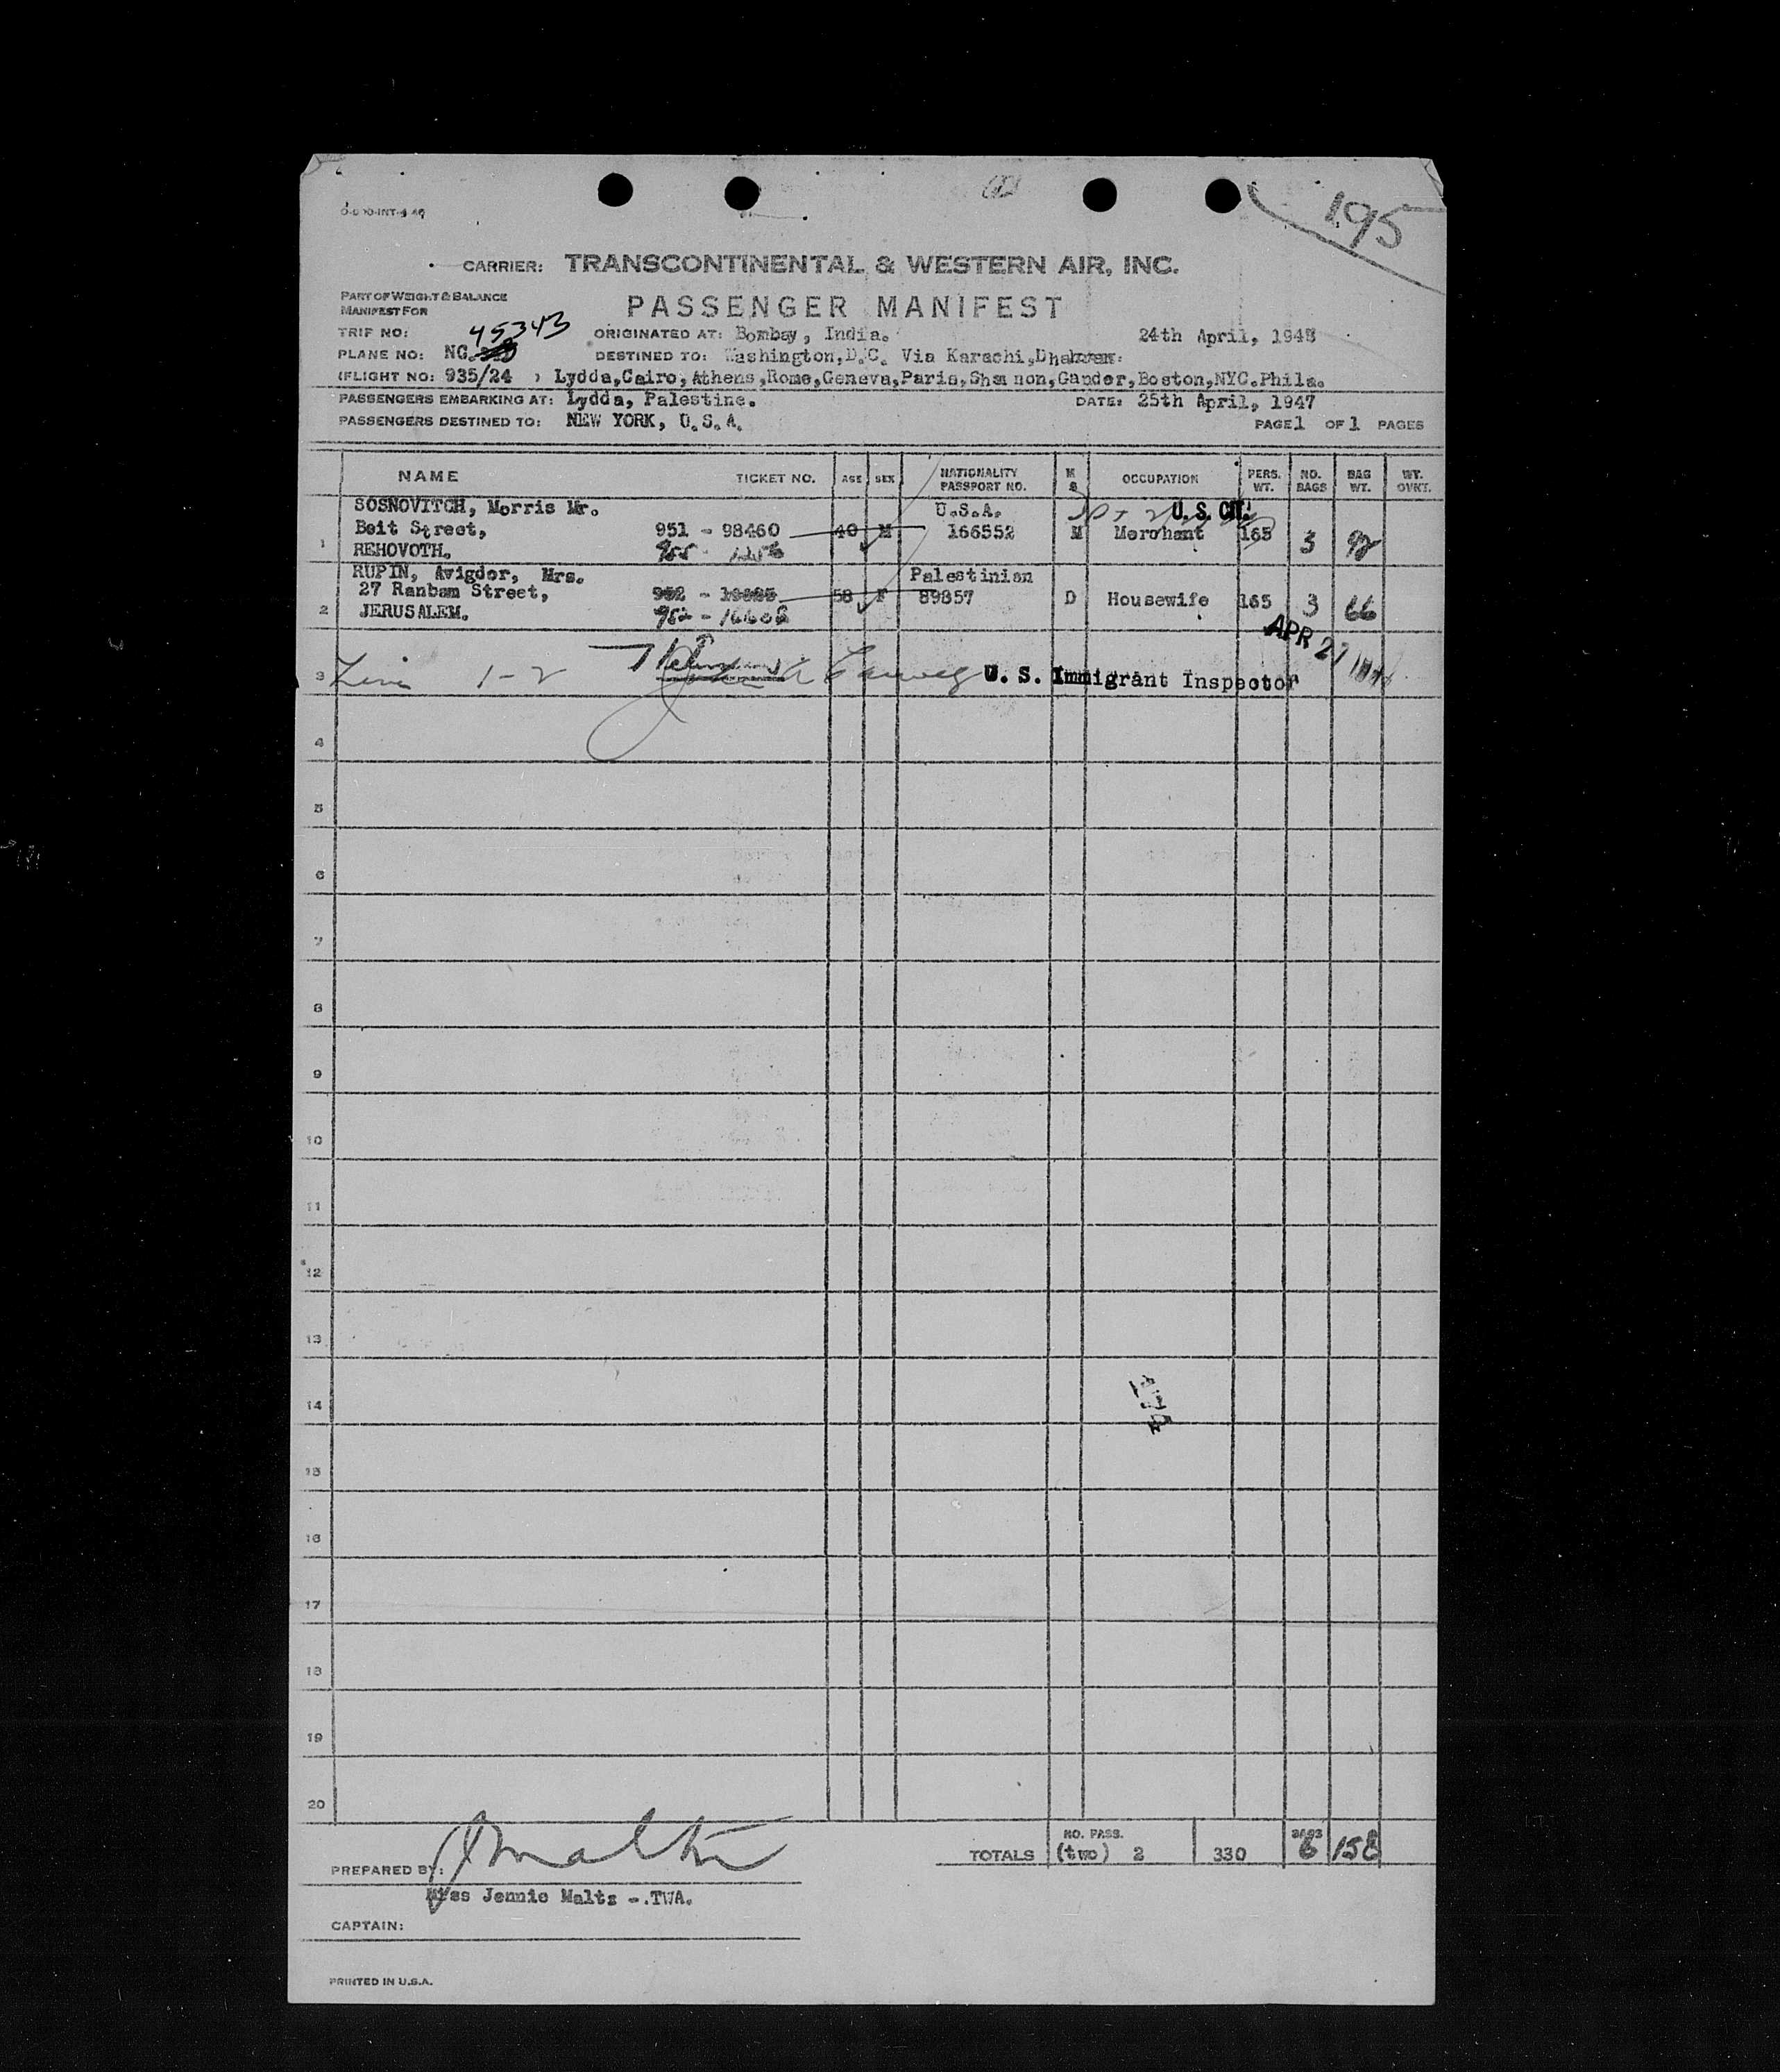 195
CARRIER: TRANSCONTINENTAL & WESTERN AIR, INC.
PART OF WEIGHT & BALANCE
MANIFEST FOR
PASSENGER MANIFEST
TRIP NO: 45343 ORIGINATED AT: Bombay, India. 24th April, 194
PLANE NO: NC. DESTINED TO: Washington,D.C. Via Karachi,Dhahran.
(FLIGHT NO: 935/24 ) Lydda,Cairo,Athens,Rome,Geneva,Paris,Shannon,Gander,Boston,NYC.Phila.
PASSENGERS EMBARKING AT: Lydda, Palestine. DATE: 25th April, 1947
PASSENGERS DESTINED TO: NEW YORK, U.S.A. PAGE 1 OF 1 PAGES
NAME TICKET NO. AGE SEX NATIONALITY PASSPORT NO. M S OCCUPATION PERS. WT. NO. BAGS BAG WT. WT. OVRT.
SOSNOVITCH, Morris Mr. U.S.A. U.S. CIT.
Beit Street, 951 - 98460 40 M 166552 M Merchant 165 3 92
1 REHOVOTH.
RUPIN, Avigdor, Mrs. Palestinian
27 Ranbam Street, 952 - 58 F 89857 D Housewife 165 3 66
2 JERUSALEM. 952 - 16608
APR 27
3 Line 1-2 U. S. Immigrant Inspector
4
5
6
7
8
9
10
11
12
13
14
15
16
17
18
19
20
TOTALS NO. PASS. (two) 2 330 BAGS 6 158
PREPARED BY: J Maltz
Miss Jennie Maltz -.TWA.
CAPTAIN:
PRINTED IN U.S.A.